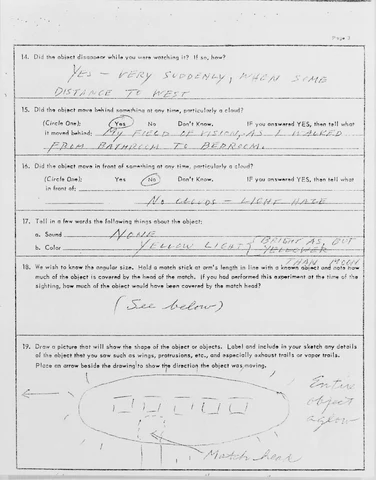 Page 3
14. Did the object disappear while you were watching it? If so, how?
YES - VERY SUDDENLY, WHEN SOME
DISTANCE TO WEST
15. Did the object move behind something at any time, particularly a cloud?
(Circle One): Yes No Don't Know. IF you answered YES, then tell what
it moved behind: MY FIELD OF VISION, AS I WALKED
FROM BATHROOM TO BEDROOM.
16. Did the object move in front of something at any time, particularly a cloud?
(Circle One): Yes No Don't Know. IF you answered YES, then tell what
in front of:
NO CLOUDS - LIGHT HAZE
17. Tell in a few words the following things about the object:
a. Sound NONE
b. Color YELLOW LIGHT, BRIGHT AS, BUT
YELLOWER
THAN MOON
18. We wish to know the angular size. Hold a match stick at arm's length in line with a known object and note how
much of the object is covered by the head of the match. If you had performed this experiment at the time of the
sighting, how much of the object would have been covered by the match head?
(See below)
19. Draw a picture that will show the shape of the object or objects. Label and include in your sketch any details
of the object that you saw such as wings, protrusions, etc., and especially exhaust trails or vapor trails.
Place an arrow beside the drawing to show the direction the object was moving.
Entire
object
aglow
Match head